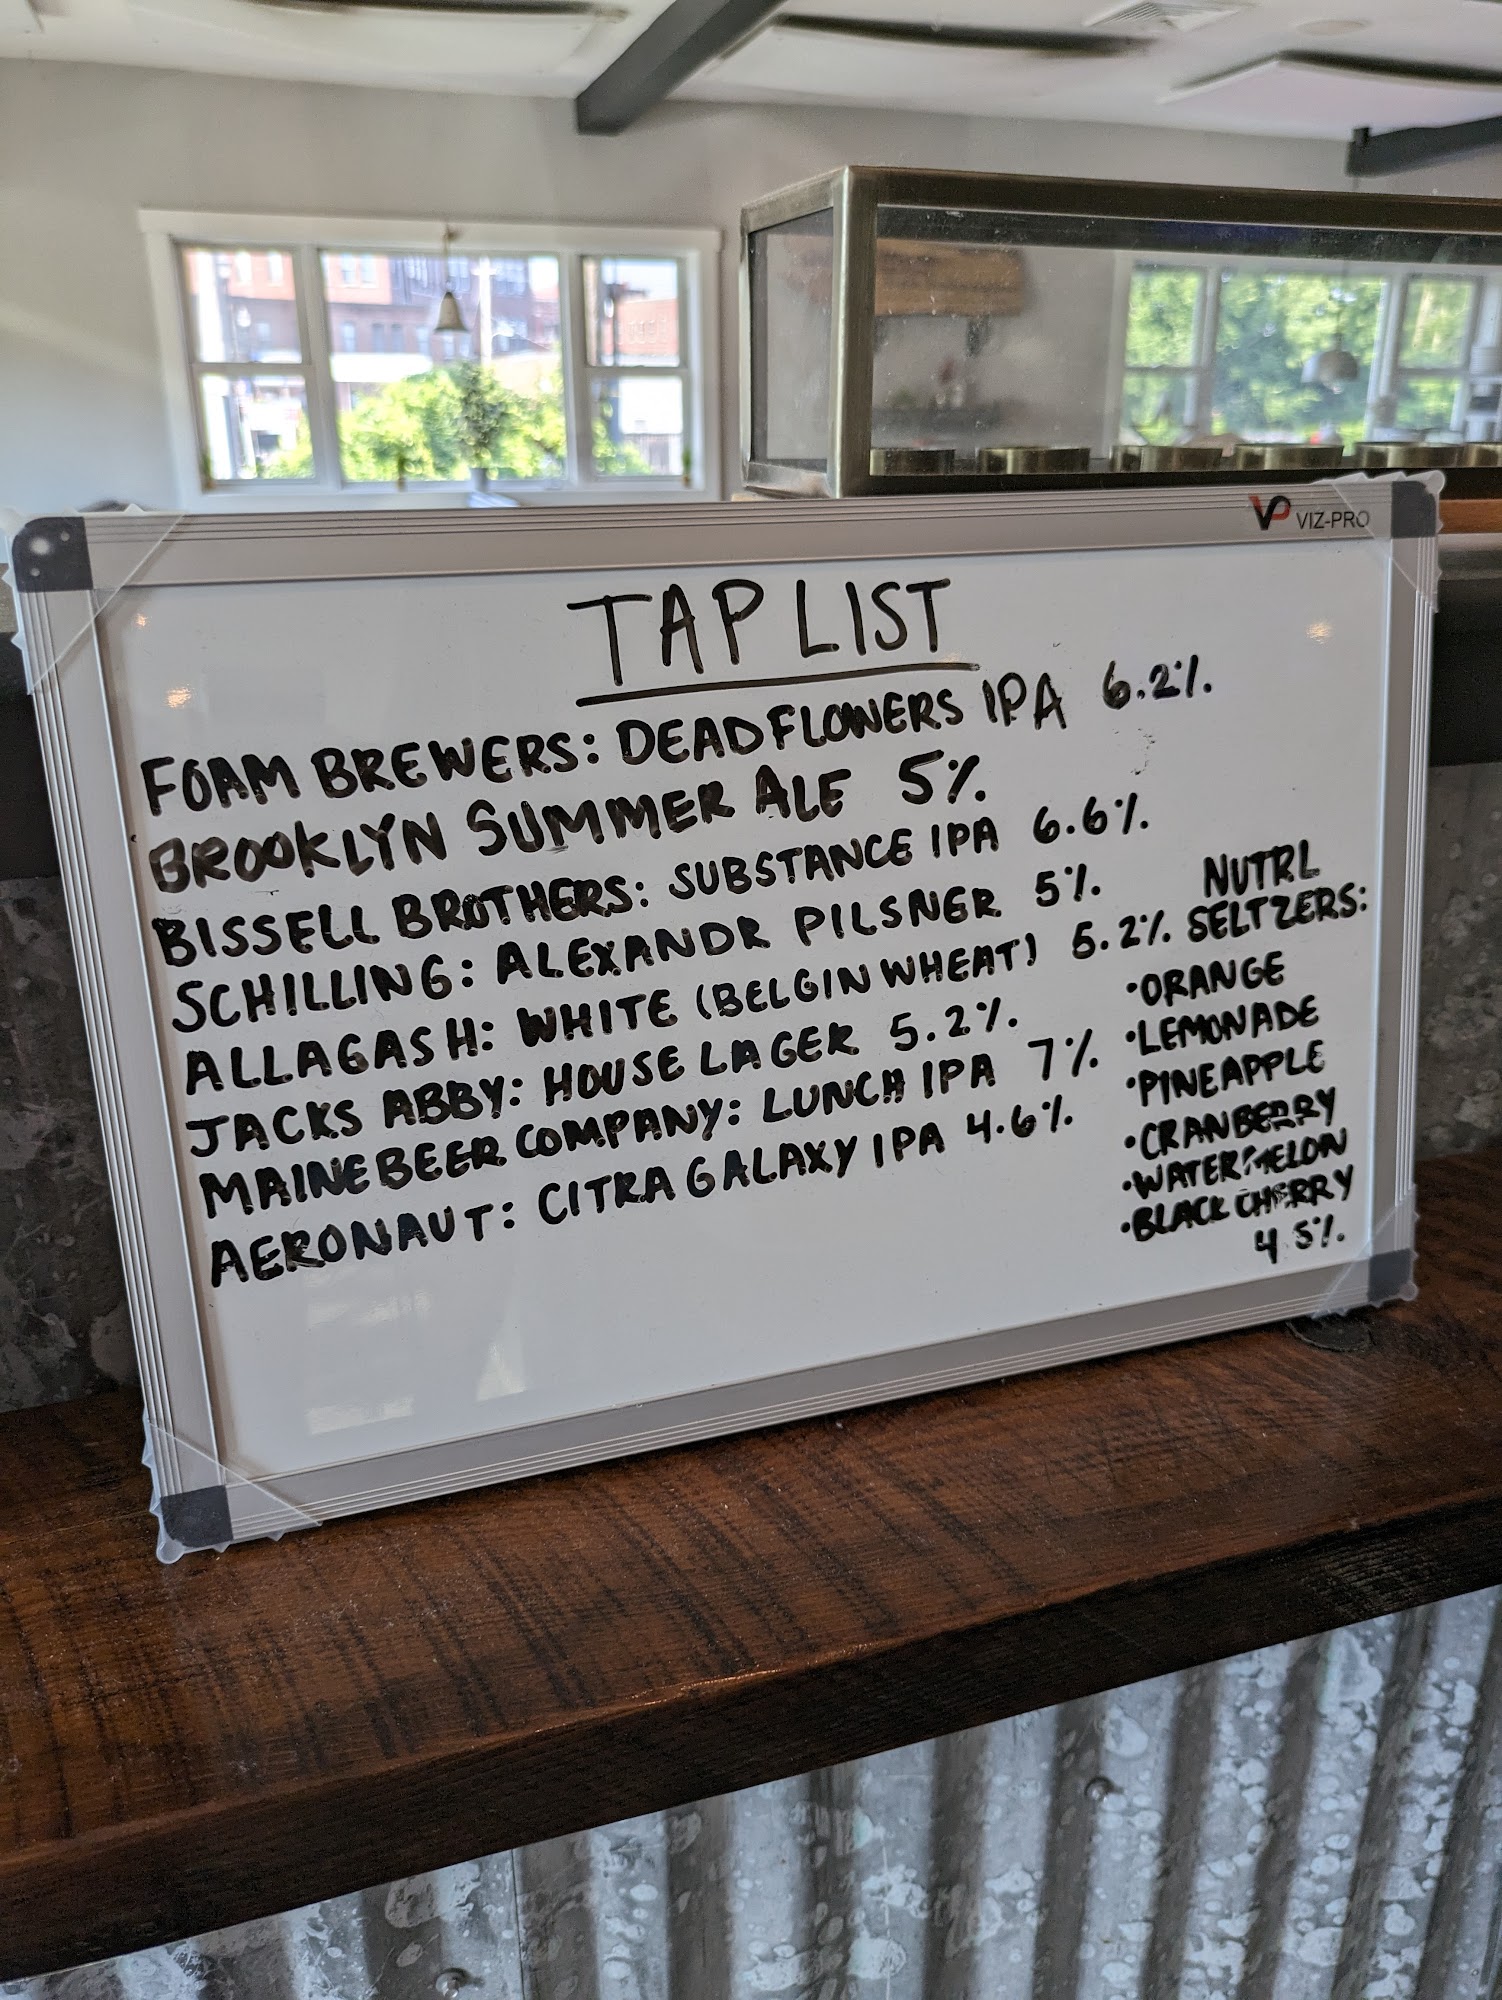 VP VIZ-PRO
TAP LIST
FOAM BREWERS: DEADFLOWERS IPA 6.2%
BROOKLYN SUMMER ALE 5%
BISSELL BROTHERS: SUBSTANCE IPA 6.6%
SCHILLING: ALEXANDR PILSNER 5%
ALLAGASH: WHITE (BELGIN WHEAT) 5.2%
JACKS ABBY: HOUSE LAGER 5.2%
MAINE BEER COMPANY: LUNCH IPA 7%
AERONAUT: CITRA GALAXY IPA 4.6%
NUTRL
SELTZERS:
•ORANGE
•LEMONADE
•PINEAPPLE
•CRANBERRY
•WATERMELON
•BLACK CHERRY
4.5%